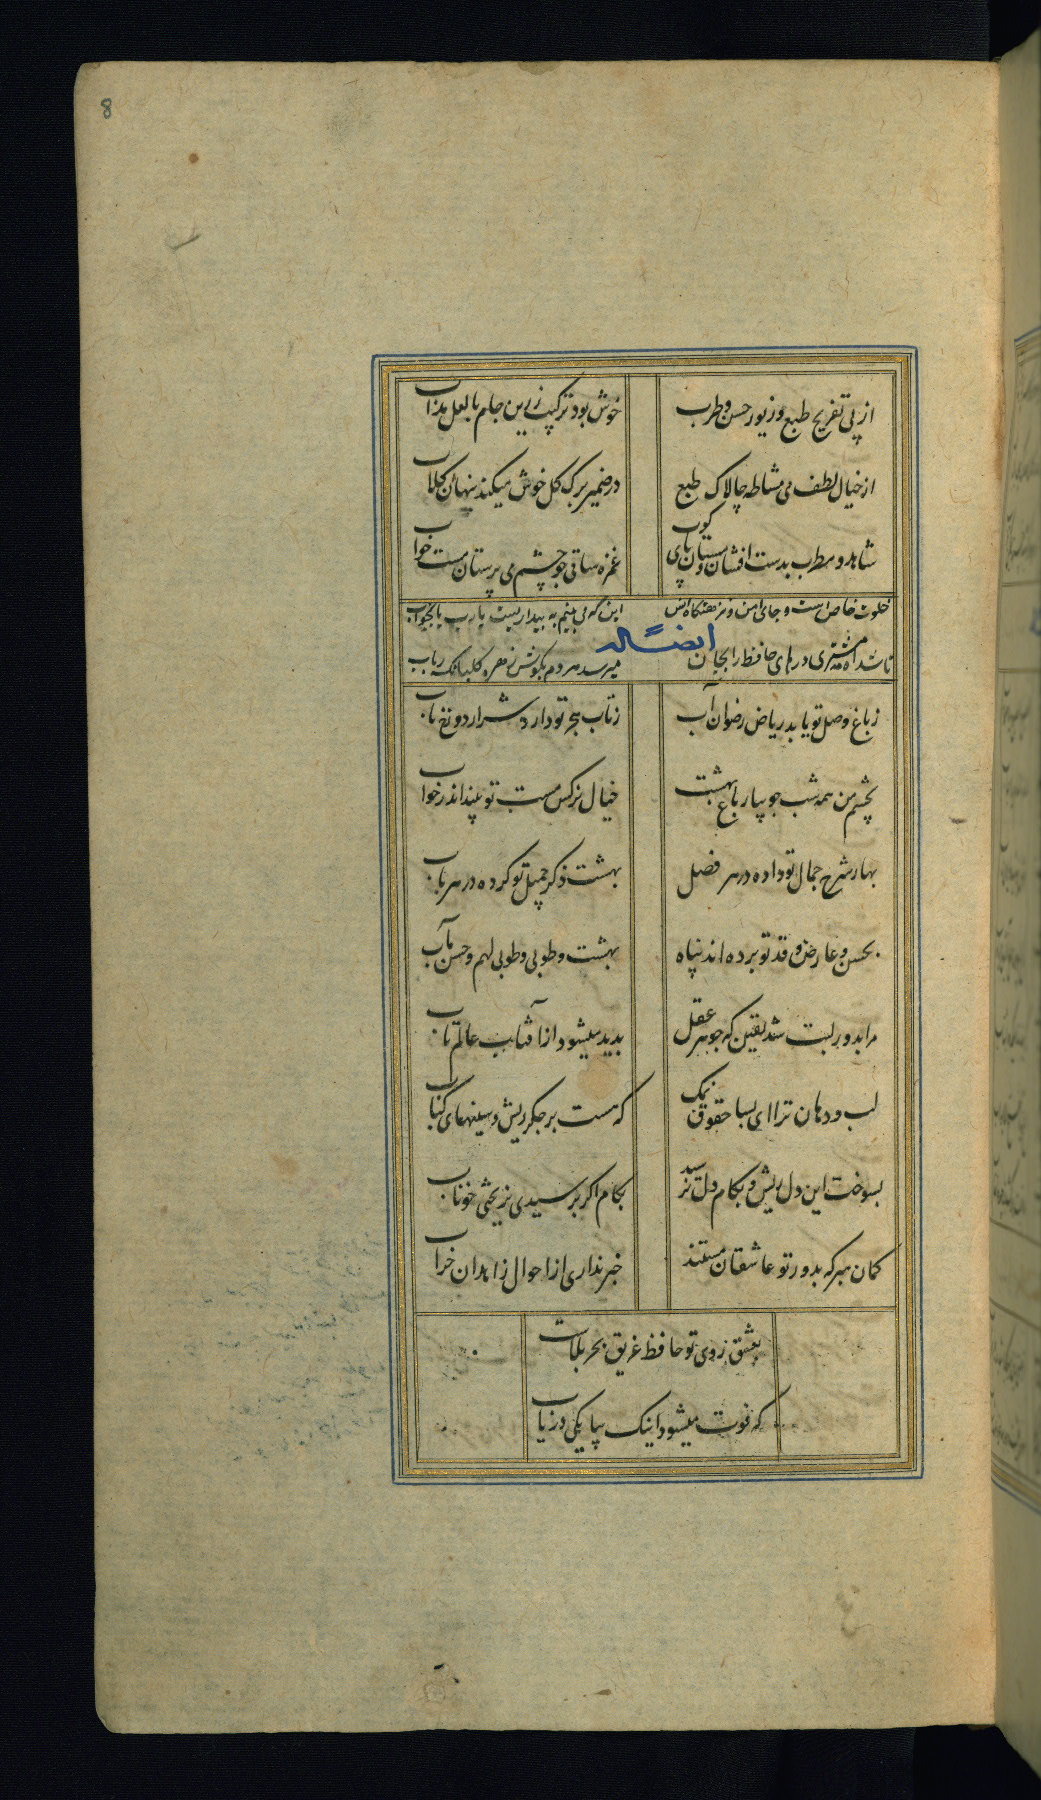 8
از پی تفریح طبع و زیور حسن و طرب
خوش بود ترکیب زرین جام با لعل مذاب
از خیال لطف می مشاطه چالاک طبع
در ضمیر برک کل خوش میکند پنهان کلاب
شاهد و مطرب بدست افشان و مستان پای کوب
غمزه ساقی جو چشم می پرستان مست خواب
خلوت خاص است و جای امن و نزهتکاه انس
این که می بینم به بیداریست یا رب یا بخواب
ایضا له
تا شد آن مه مشتری درهای حافظ را بجان
میرسد هر دم بکوش زهره کلبانک رباب
ز باغ وصل تو یابد ریاض رضوان آب
ز تاب هجر تو دارد شرار دوزخ تاب
بچشم من همه شب جویبار باغ بهشت
خیال نرکس مست تو بیند اندر خواب
بهار شرح جمال تو داده در هر فصل
بهشت ذکر جمیل تو کرده در هر باب
بحسن و عارض و قد تو برده اند پناه
بهشت و طوبی و طوبی لهم و حسن مآب
مرا بدور لبت شد یقین که جوهر عقل
بدید میشود از آفتاب عالم تاب
لب و دهان ترا ای بسا حقوق نمک
که هست بر جکر ریش و سینهای کباب
بسوخت این دل ریش و بکام دل نرسید
بکام اکر برسیدی نریختی خوناب
کمان مبر که بدور تو عاشقان مستند
خبر نداری از احوال زاهدان خراب
بعشق روی تو حافظ غریق بحر بلاست
که فوت میشود اینک بیا یکی دریاب